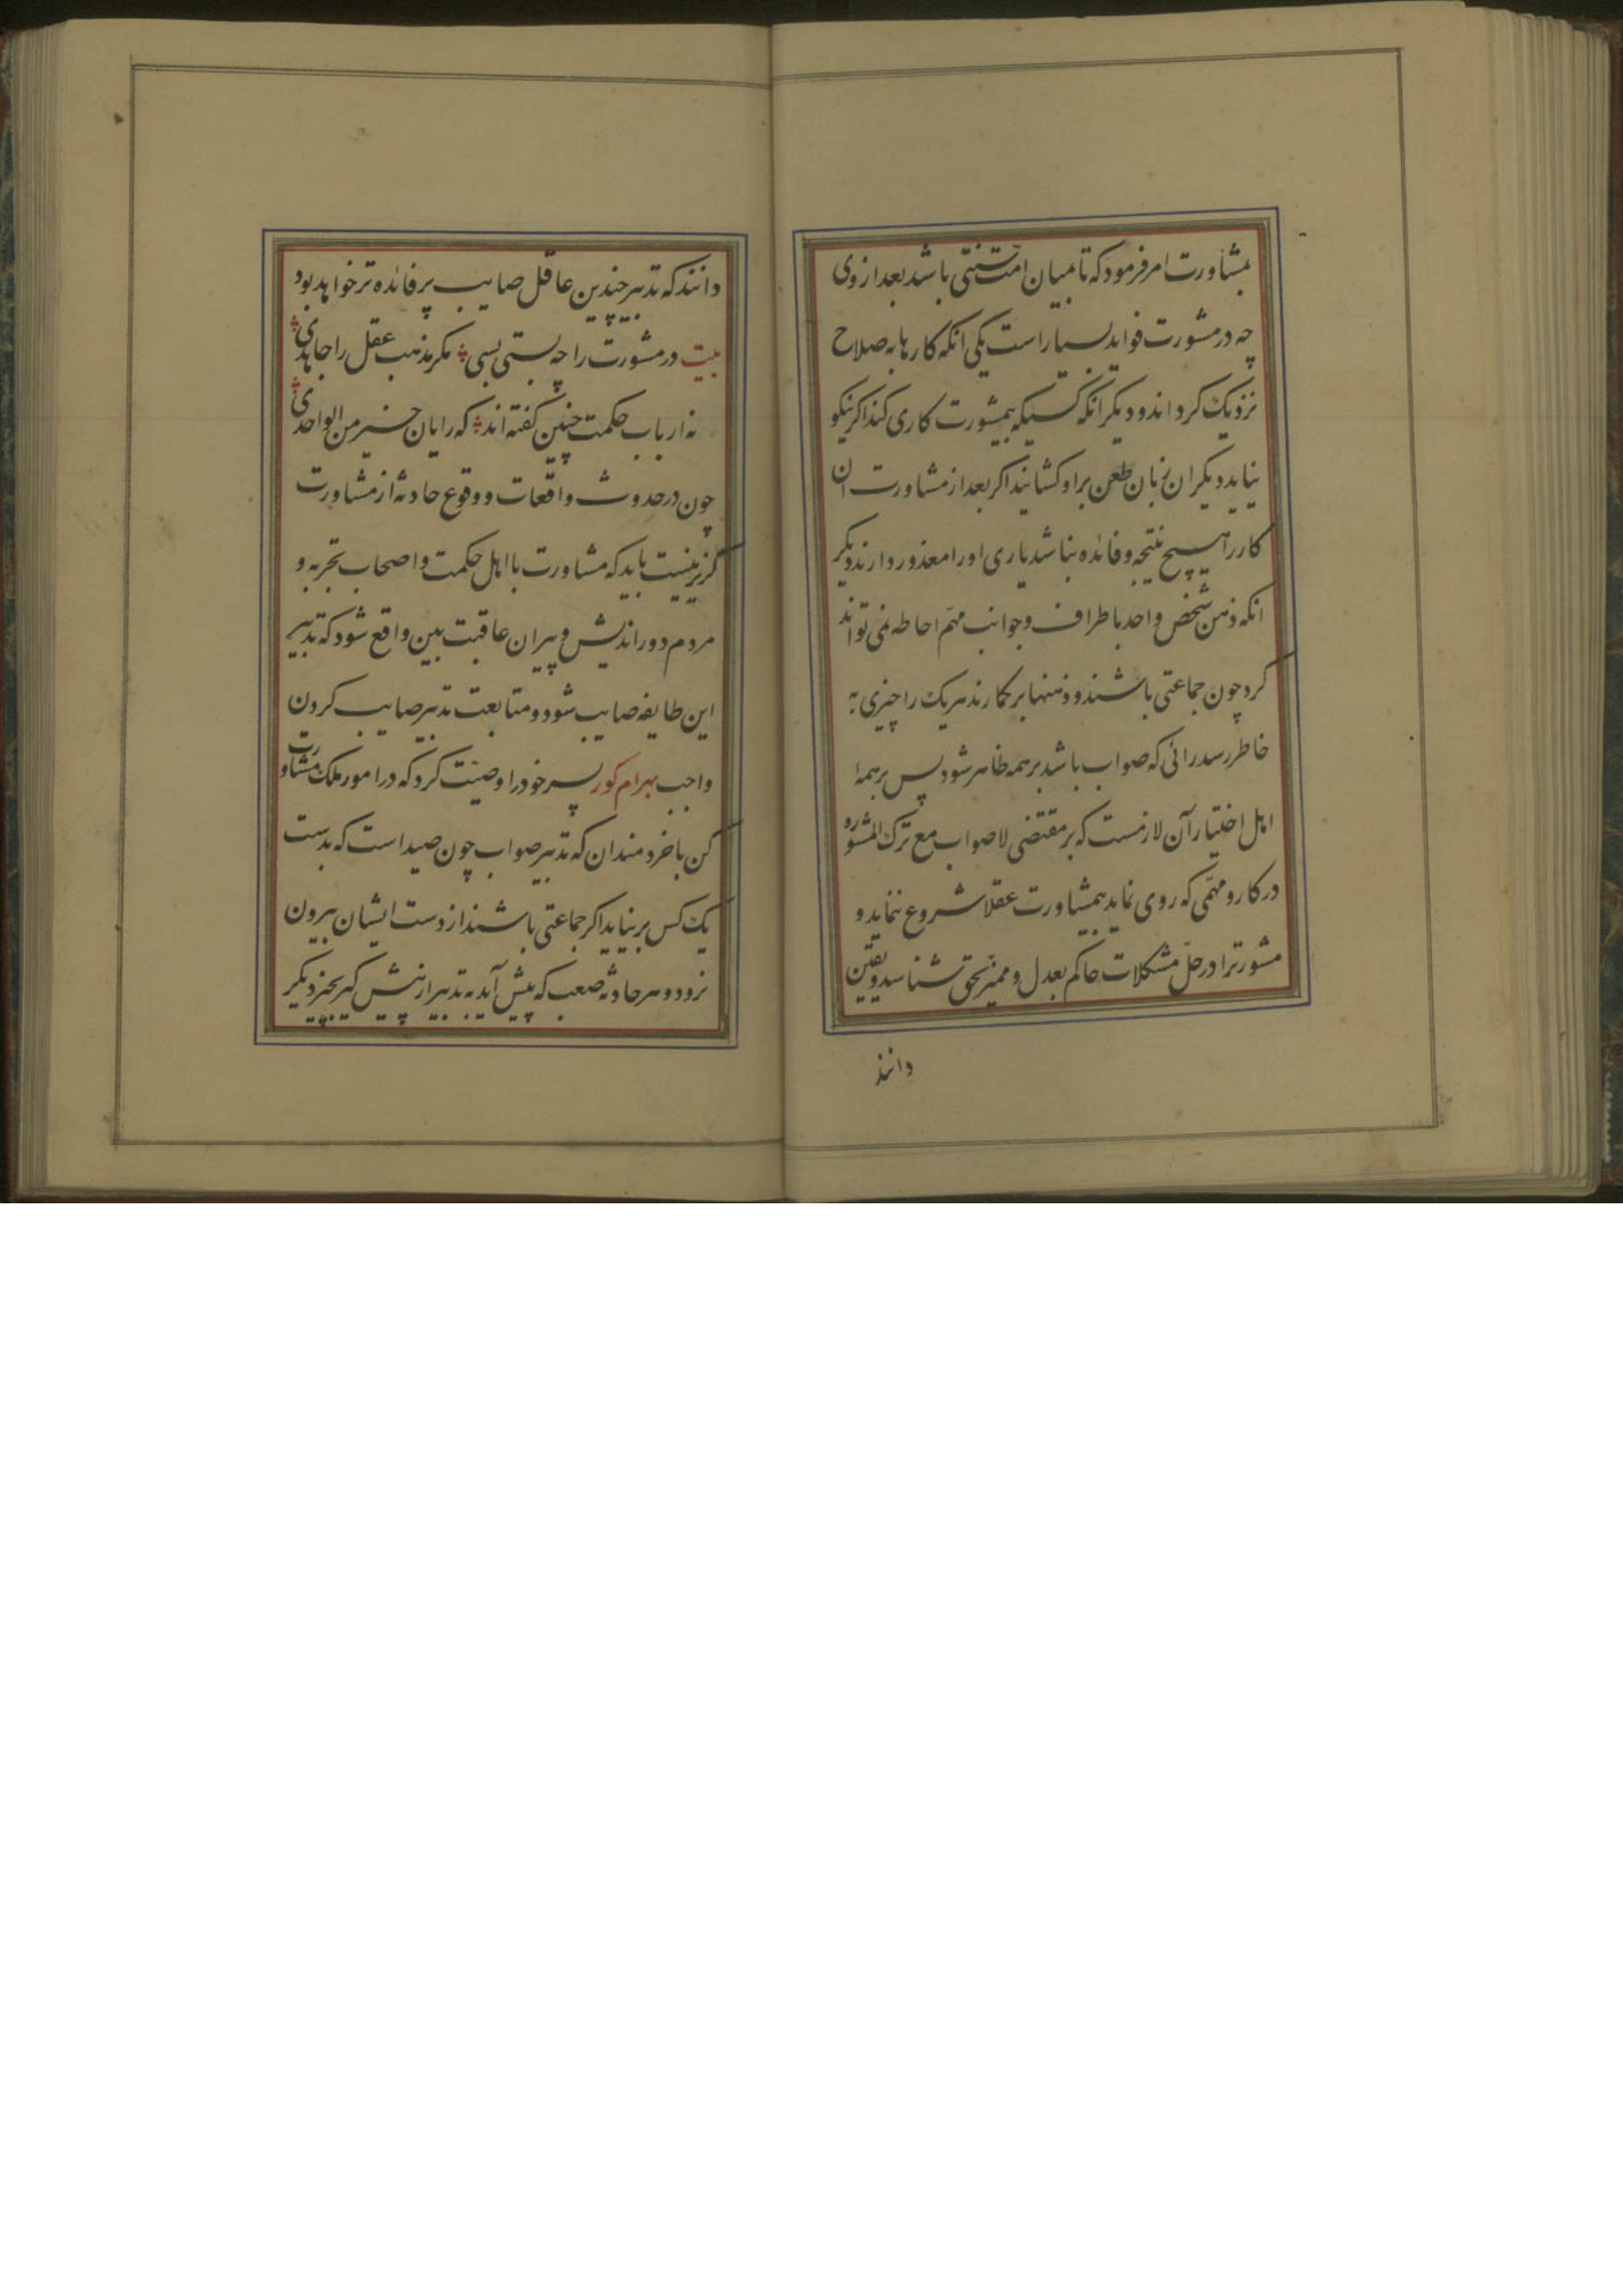 بمشاورت امر فرمود که تا میان امت سنتی باشد بعد از وی
چه در مشورت فواید بسیار است یکی انکه کارها به صلاح
نزدیک کرداند و دیکر انکه کسیکه بیمشورت کاری کند اکر نیکو
نیاید دیکران زبان طعن بر او کشایند اکر بعد از مشاورت ان
کار را هیچ نتیجه و فائده نباشد باری او را معذور دارند دیکر
انکه ذهن شخص واحد باطراف و جوانب مهم احاطه نمی تواند
کرد چون جماعتی باشند و ذهنها بر کمارند هر یک را چیزی به
خاطر رسد رائی که صواب باشد بر همه ظاهر شود پس بر همهٔ
اهل اختیار آن لازمست که بر مقتضی لا صواب مع ترک المشوره
در کار و مهمی که روی نماید بیمشاورت عقلا شروع ننماید و
مشورترا در حل مشکلات حاکم بعدل و ممیز بحق شناسد و یقین
دانند
دانند که تدبیر چندین عاقل صایب پر فائده تر خواهد بود
بیت در مشورت را چه بستی بسی مکر مذهب عقل را جاهدی
نه ارباب حکمت چنین کفته اند که رایان خیر من الواحدی
چون در حدوث واقعات و وقوع حادثه از مشاورت
کزیر نیست باید که مشاورت با اهل حکمت و اصحاب تجربه و
مردم دور اندیش و پیران عاقبت بین واقع شود که تدبیر
این طایفه صایب شود و متابعت تدبیر صایب کردن
واجب بهرام کور پسر خود را وصیت کرد که در امور ملک مشاورت
کن با خردمندان که تدبیر صواب چون صید است که بدست
یک کس بر نیاید اکر جماعتی باشند از دست ایشان بیرون
نرود و هر حادثه صعب که پیش آید به تدبیر از پیش کیر بخیر دیکر